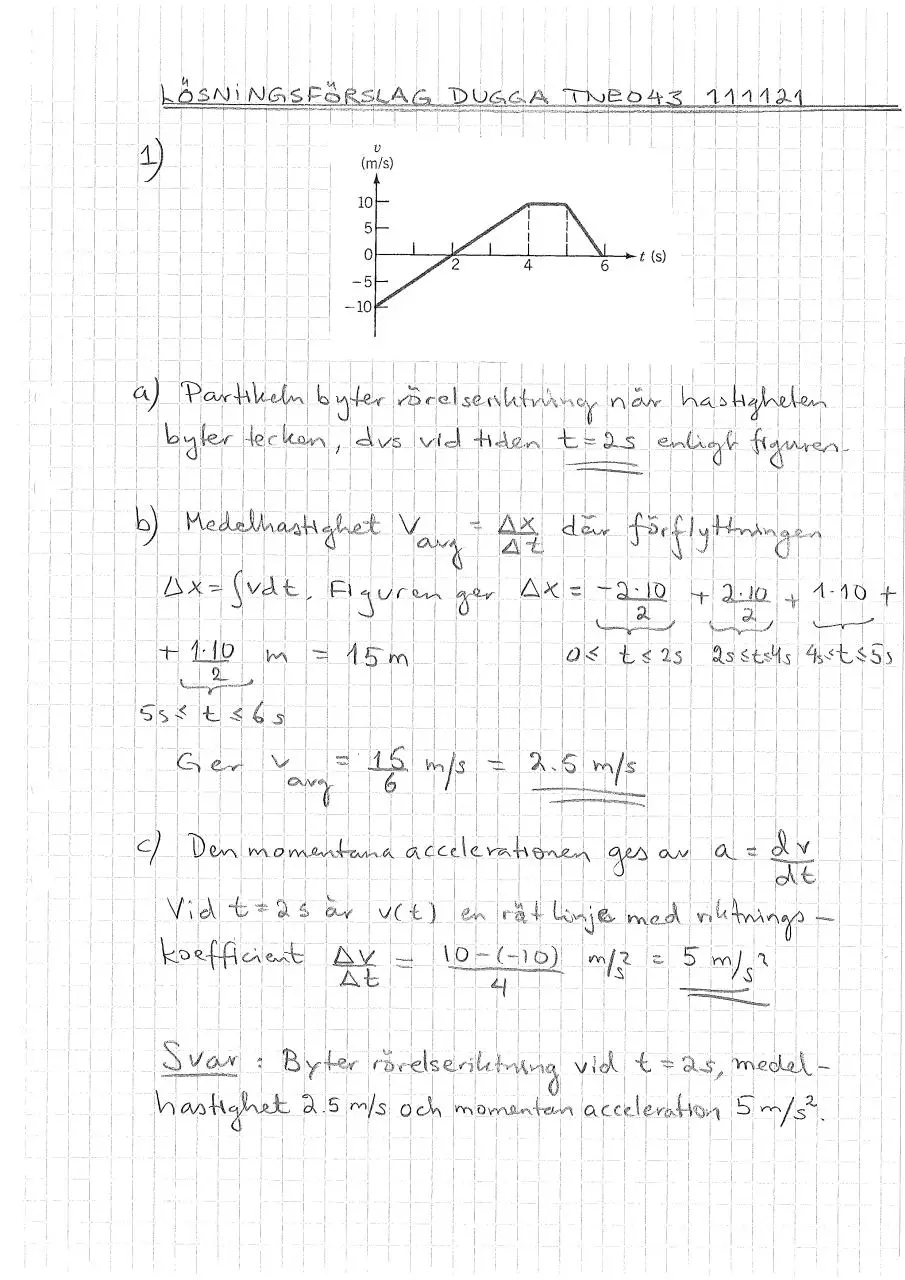 LÖSNINGSFÖRSLAG DUGGA TNE043 111121
1)
v
(m/s)
10
5
0
-5
-10
2
4
6
t (s)
a) Partikeln byter rörelseriktning när hastigheten
byter tecken, dvs vid tiden t = 2s enligt figuren.
b) Medelhastighet V_avg = Δx/Δt där förflyttningen
Δx = ∫vdt. Figuren ger Δx = -2·10/2 + 2·10/2 + 1·10 +
0 ≤ t ≤ 2s 2s ≤ t ≤ 4s 4s ≤ t ≤ 5s
+ 1·10/2 m = 15 m
5s ≤ t ≤ 6s
Ger v_avg = 15/6 m/s = 2.5 m/s
c) Den momentana accelerationen ges av a = dv/dt
Vid t = 2s är v(t) en rät linje med riktnings-
koefficient Δv/Δt = 10-(-10)/4 m/s² = 5 m/s²
Svar: Byter rörelseriktning vid t = 2s, medel-
hastighet 2.5 m/s och momentan acceleration 5 m/s².